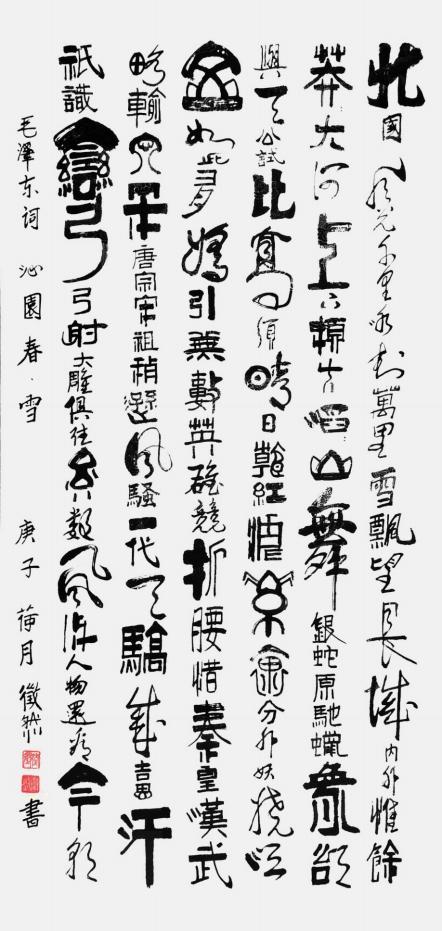 北國風光千里冰封萬里雪飄望長城內外惟餘
莽大河上下頓失滔山舞銀蛇原馳蠟象欲
與天公試比高須晴日看紅裝素裹分外妖嬈江
山如此多嬌引無數英雄競折腰惜秦皇漢武
略輸文采唐宗宋祖稍遜風騷一代天驕成吉思汗
祇識彎弓射大雕俱往矣數風流人物還看今朝
毛澤东詞 沁園春·雪 庚子荷月 書